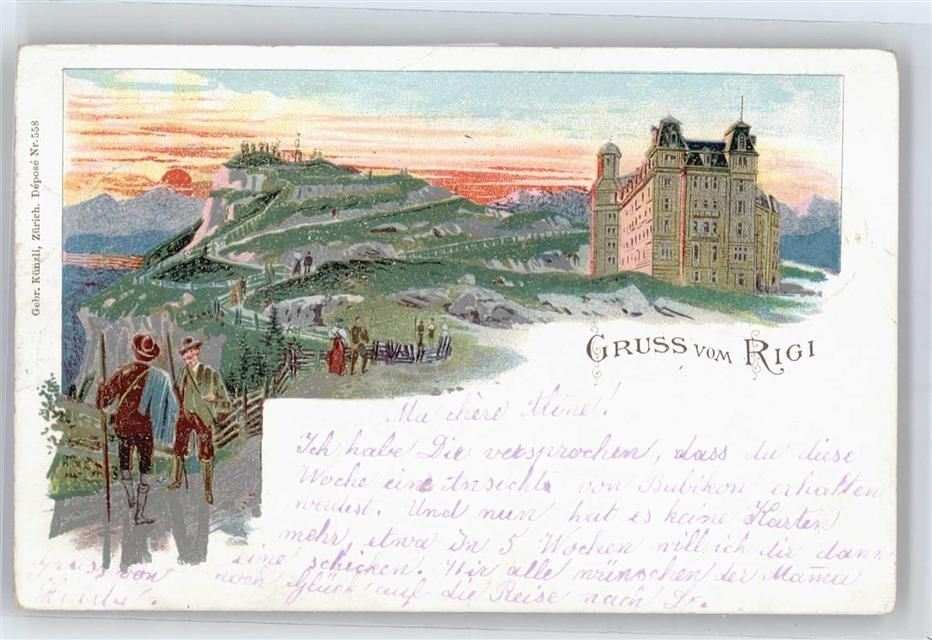 Gebr. Künzli, Zürich. Déposé Nr. 558
GRUSS VOM RIGI
Ma chère Aline!
Ich habe Dir versprochen, dass du diese
Woche eine Ansicht von Bubikon erhalten
werdest. Und nun hat es keine Karten
mehr, etwa in 5 Wochen will ich dir dann
eine schicken. Wir alle wünschen der Mama
noch Glück auf die Reise nach
Gruss von